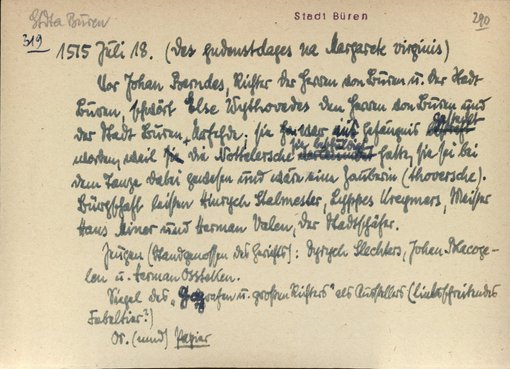 StdtA Büren
Stadt Büren
290
319
1515 Juli 18. (des gudenstdages na Margarete virginis)
Vor Johan Berndes, Richter der Herren von Büren u. der Stadt
Büren, schwört Else Wythovedes den Herren von Büren und
der Stadt Büren Urfehde. Sie war aus Gefängnis gestellt
worden, weil die Nottelersche sie beschuldigt hatte, sie sei bei
dem Tanze dabei gewesen und wäre eine Zauberin (thoversche).
Bürgschaft leisten Hinrych Stalmester, Lyppes Kregmers, Meister
Hans Meiner und Herman Valen, der Stadtschäfer.
Zeugen (Standgenossen des Gerichts): Dyrych Slechters, Johan Macoge-
len u. Herman Ossteken.
Siegel des „Gografen u. großen Richters" als Ausstellers (linksschreitendes
Fabeltier?)
Or. (mnd) Papier